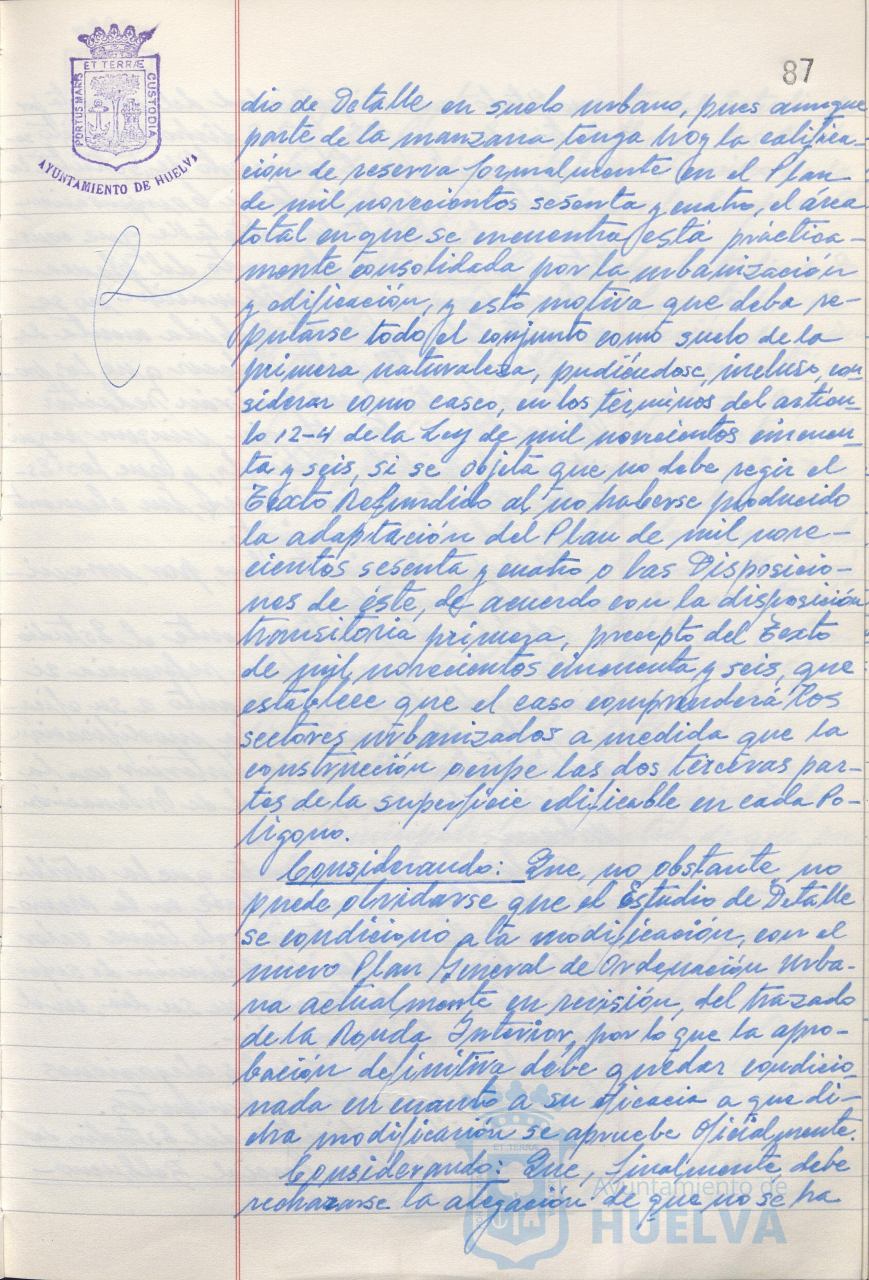 87
ET TERRÆ
PORTUS MARIS
CUSTODIA
AYUNTAMIENTO DE HUELVA
dio de Detalle en suelo urbano, pues aunque
parte de la manzana tenga hoy la califica-
ción de reserva formalmente en el Plan
de mil novecientos sesenta y cuatro, el área
total en que se encuentra está práctica-
mente consolidada por la urbanización
y edificación, y esto motiva que deba re-
putarse todo el conjunto como suelo de la
primera naturaleza, pudiéndose, incluso, con-
siderar como casco, en los términos del artícu-
lo 12-4 de la Ley de mil novecientos cincuen-
ta y seis, si se objeta que no debe regir el
Texto Refundido al no haberse producido
la adaptación del Plan de mil nove-
cientos sesenta y cuatro o las Disposicio-
nes de éste, de acuerdo con la disposición
transitoria primera, precepto del Texto
de mil novecientos cincuenta y seis, que
establece que el caso comprenderá los
sectores urbanizados a medida que la
construcción ocupe las dos terceras par-
tes de la superficie edificable en cada Po-
lígono.
Considerando: Que, no obstante, no
puede olvidarse que el Estudio de Detalle
se condicionó a la modificación, con el
nuevo Plan General de Ordenación Urba-
na actualmente en revisión, del trazado
de la Ronda Interior, por lo que la apro-
bación definitiva debe quedar condicio-
nada en cuanto a su eficacia a que di-
cha modificación se apruebe oficialmente.
Considerando: Que, finalmente debe
rechazarse la alegación de que no se ha
ET TERRÆ
Ayuntamiento de
HUELVA